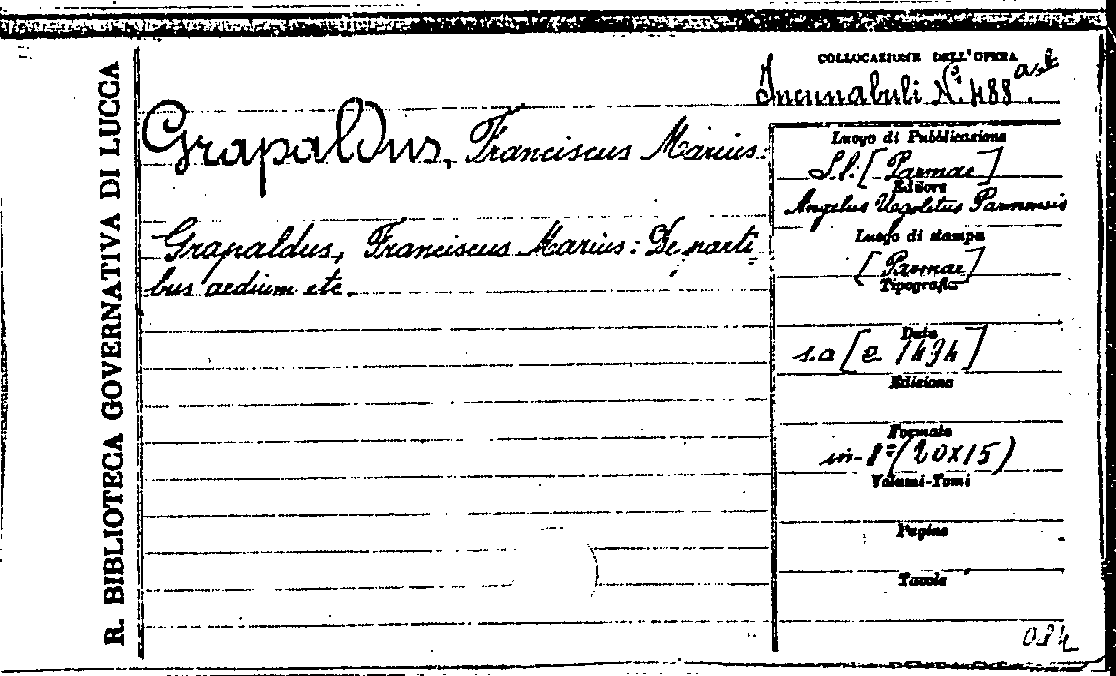 R. BIBLIOTECA GOVERNATIVA DI LUCCA
COLLOCAZIONE DELL'OPERA
Incunabuli N. 488
Grapaldus, Franciscus Marius:
Grapaldus, Franciscus Marius: De parti
bus aedium etc.
Luogo di Pubblicazione
S.l. [Parmae]
Editore
Angelus Ugoletus Parmensis
Luogo di stampa
[Parmae]
Tipografia
Data
s.a [ 1494]
Edizione
Formato
in-8° (20x15)
Volumi-Tomi
Pagine
Tavole